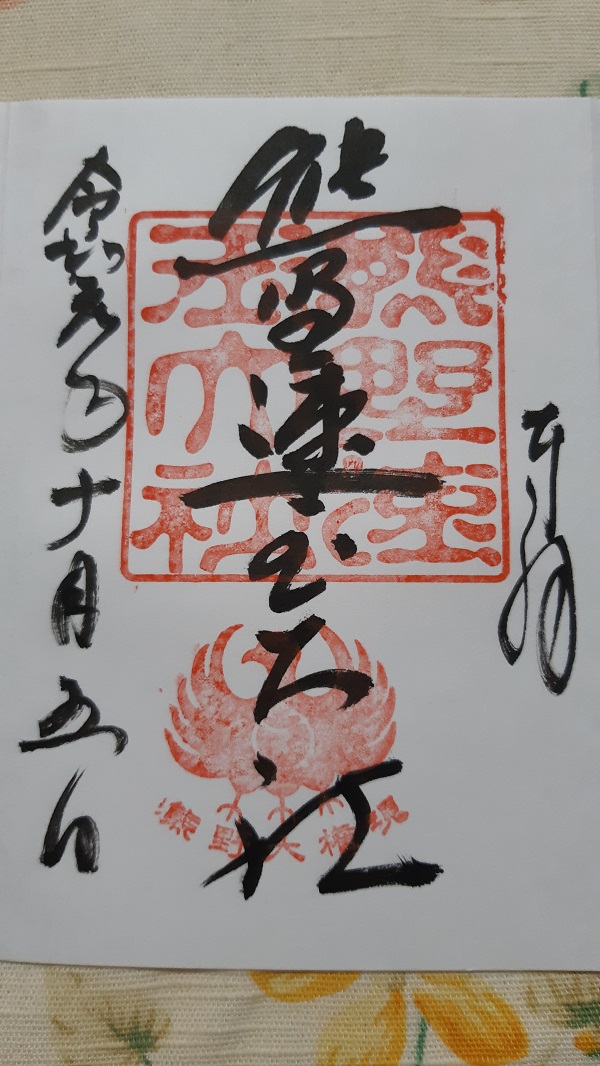 奉拝
熊野速玉大社
令和元年十月五日
熊野速
玉大社
熊野大権現